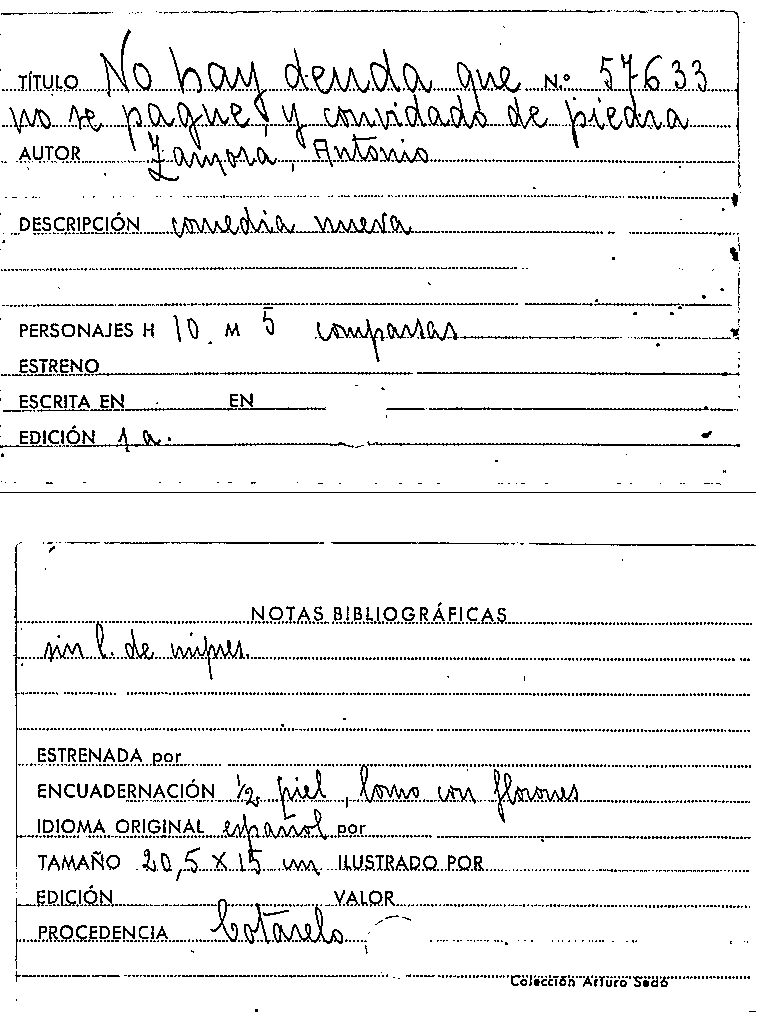 TÍTULO No hay deuda que N.º 57633
no se pague, y convidado de piedra
AUTOR Zamora, Antonio
DESCRIPCIÓN comedia nueva
PERSONAJES H 10. M 5 comparsas
ESTRENO
ESCRITA EN EN
EDICIÓN 1a.
NOTAS BIBLIOGRÁFICAS
sin l. de impres.
ESTRENADA por
ENCUADERNACIÓN 1/2 piel, lomo con florones
IDIOMA ORIGINAL español por
TAMAÑO 20,5 X 15 cm ILUSTRADO POR
EDICIÓN VALOR
PROCEDENCIA Cotarelo
Colección Arturo Sedó